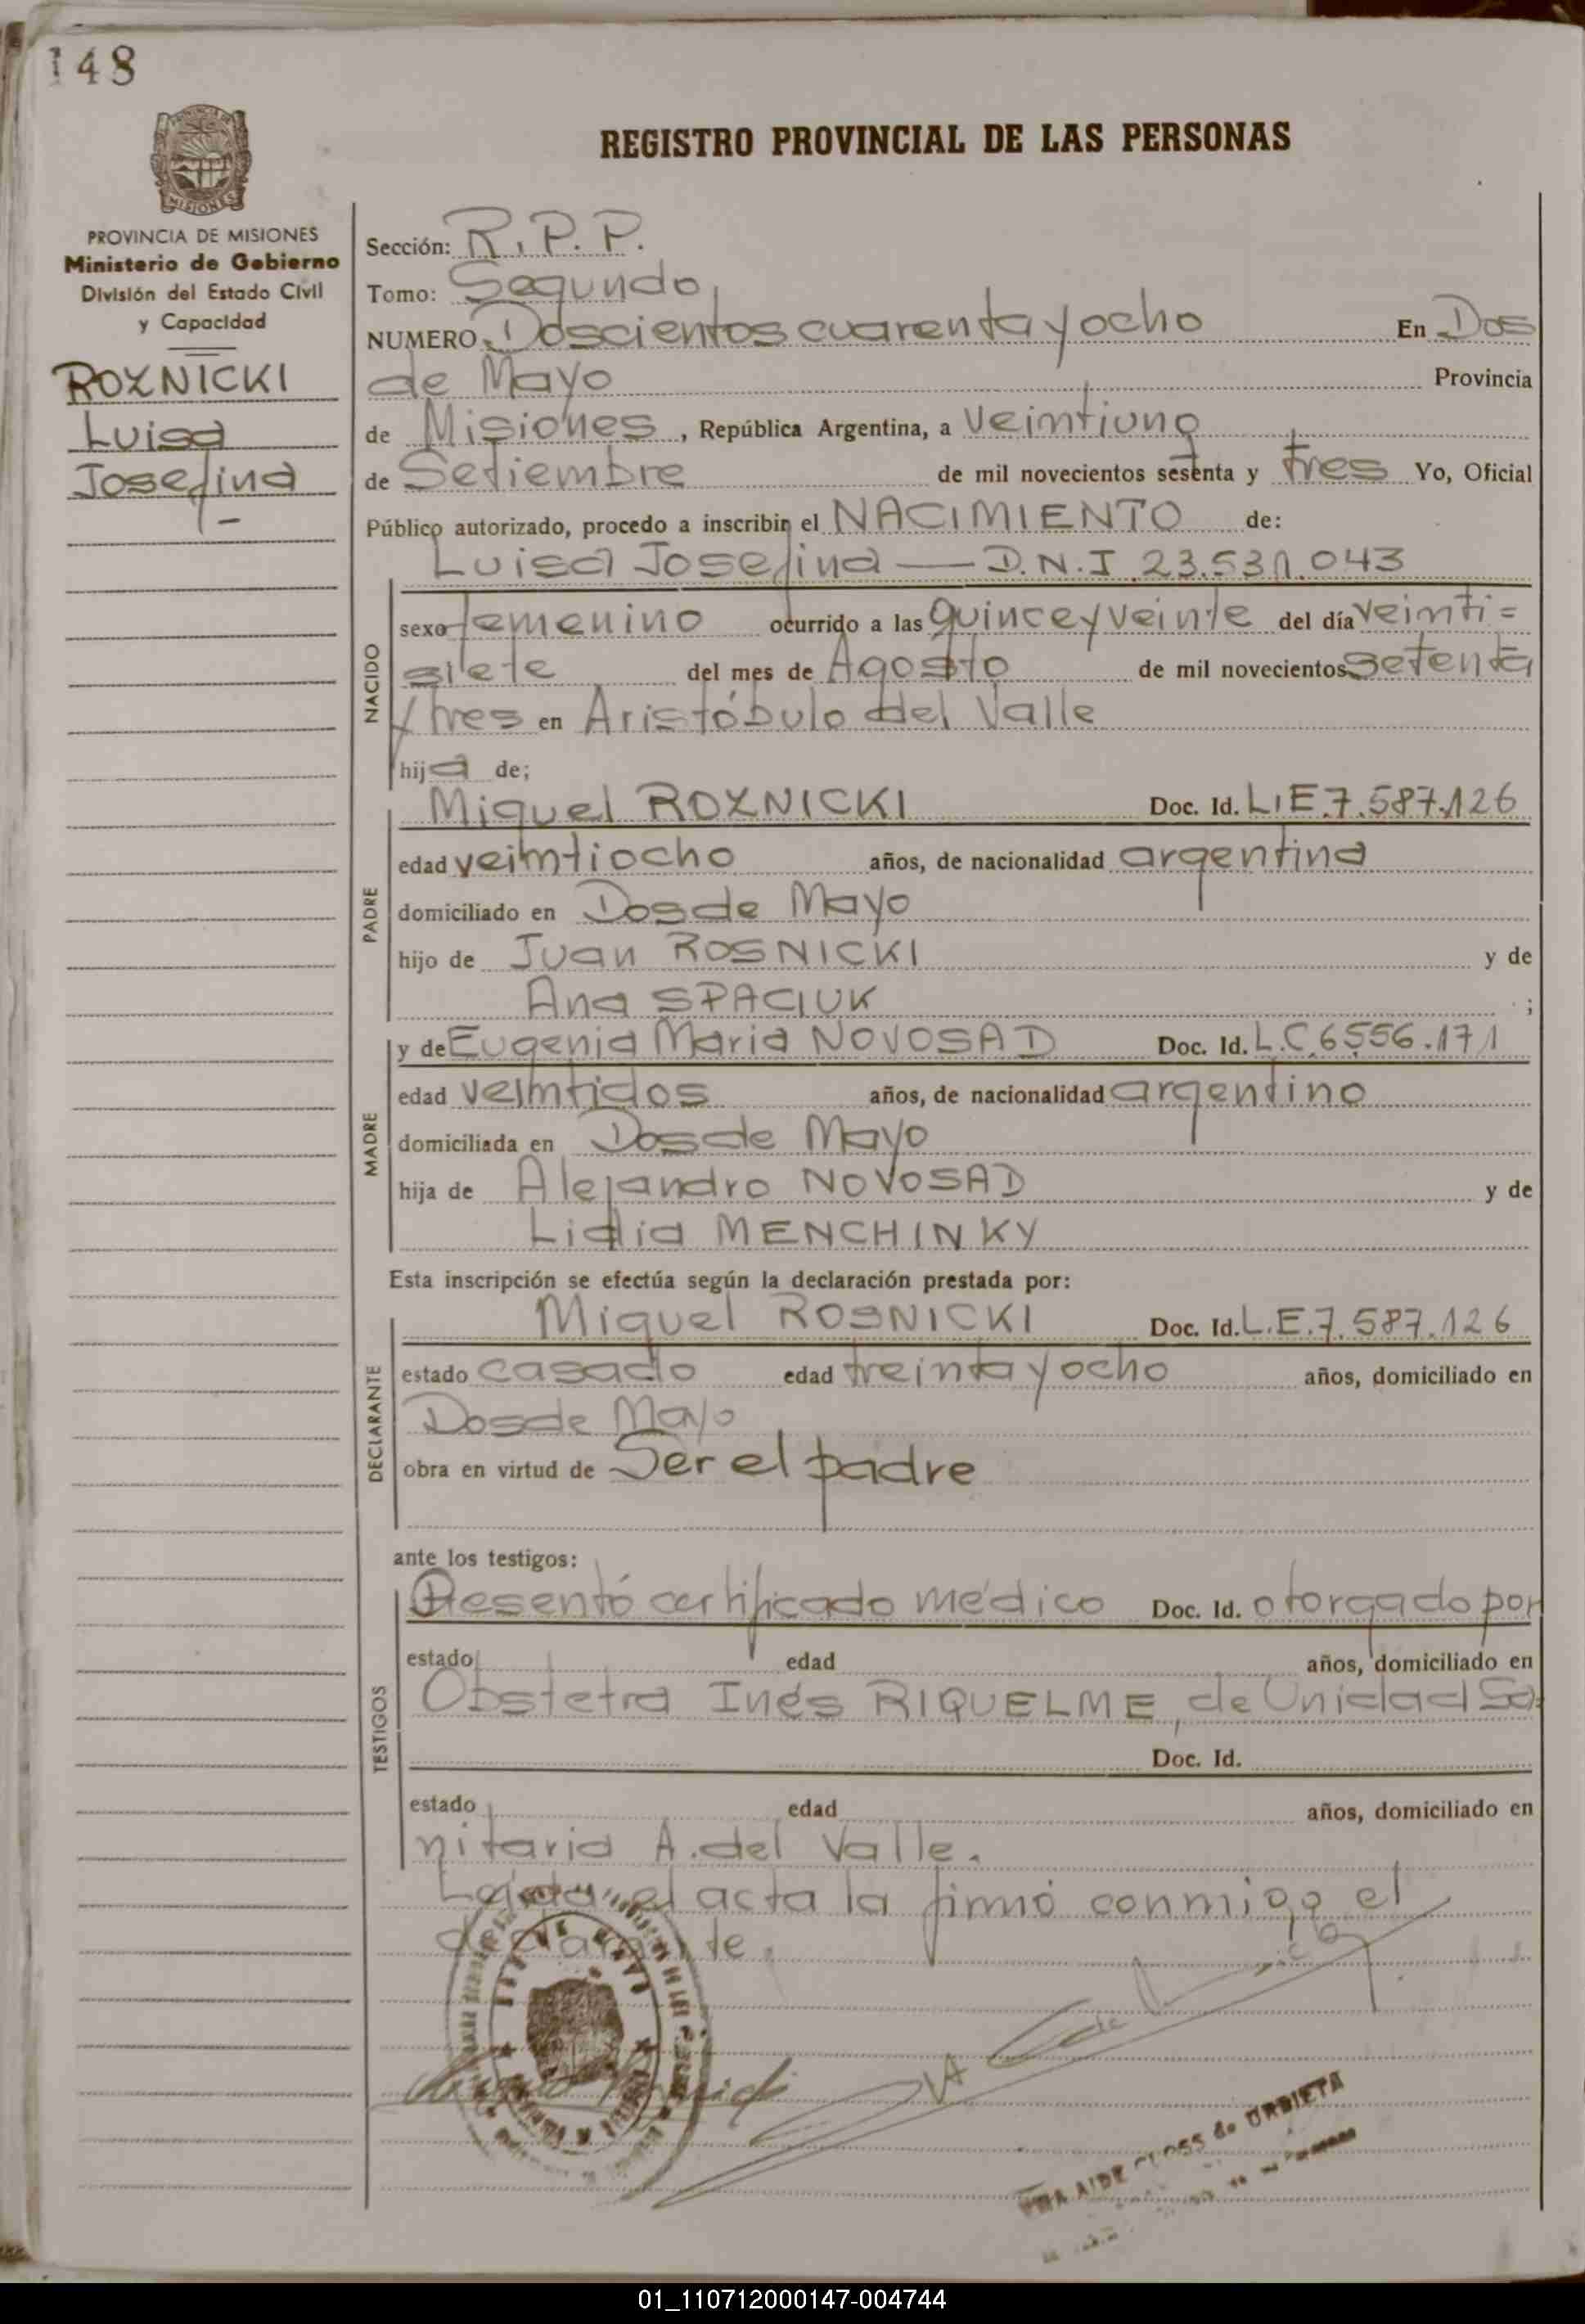 148
REGISTRO PROVINCIAL DE LAS PERSONAS
PROVINCIA DE MISIONES
Ministerio de Gobierno
División del Estado Civil
y Capacidad
ROZNICKI
Luisa
Josefina
Sección: R.P.P.
Tomo: Segundo
NUMERO Doscientos cuarenta y ocho En Dos
de Mayo Provincia
de Misiones, República Argentina, a veimtiuno
de Setiembre de mil novecientos sesenta y tres Yo, Oficial
Público autorizado, procedo a inscribir el NACIMIENTO de:
Luisa Josefina — D.N.I 23.531.043
NACIDO
sexo femenino ocurrido a las quince y veinte del día veimti=
siete del mes de Agosto de mil novecientos setenta
y tres en Aristóbulo del Valle
hija de;
PADRE
Miguel ROZNICKI Doc. Id. L.E.7.587.126
edad veimtiocho años, de nacionalidad argentina
domiciliado en Dos de Mayo
hijo de Juan ROSNICKI y de
Ana SPACIUK ;
MADRE
y de Eugenia Maria NOVOSAD Doc. Id. L.C.6.556.171
edad veimtidos años, de nacionalidad argentino
domiciliada en Dos de Mayo
hija de Alejandro NOVOSAD y de
Lidia MENCHINKY
Esta inscripción se efectúa según la declaración prestada por:
DECLARANTE
Miguel ROSNICKI Doc. Id. L.E.7.587.126
estado casado edad treinta y ocho años, domiciliado en
Dos de Mayo
obra en virtud de Ser el padre
ante los testigos:
TESTIGOS
Presentó certificado médico Doc. Id. otorgado por
estado edad años, domiciliado en
Obstetra Inés RIQUELME, de Unidad Sa-
Doc. Id.
estado edad años, domiciliado en
nitaria A. del Valle.
Leída el acta la firmó conmigo el
declarante.
CLOSS de URBIETA
01_110712000147-004744